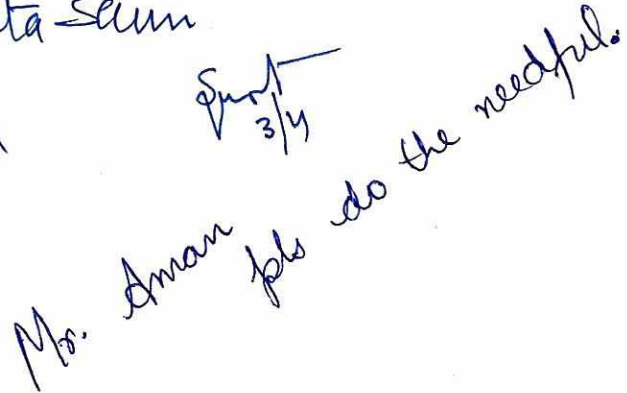 3/4
Mr. Aman
pls do the needful.